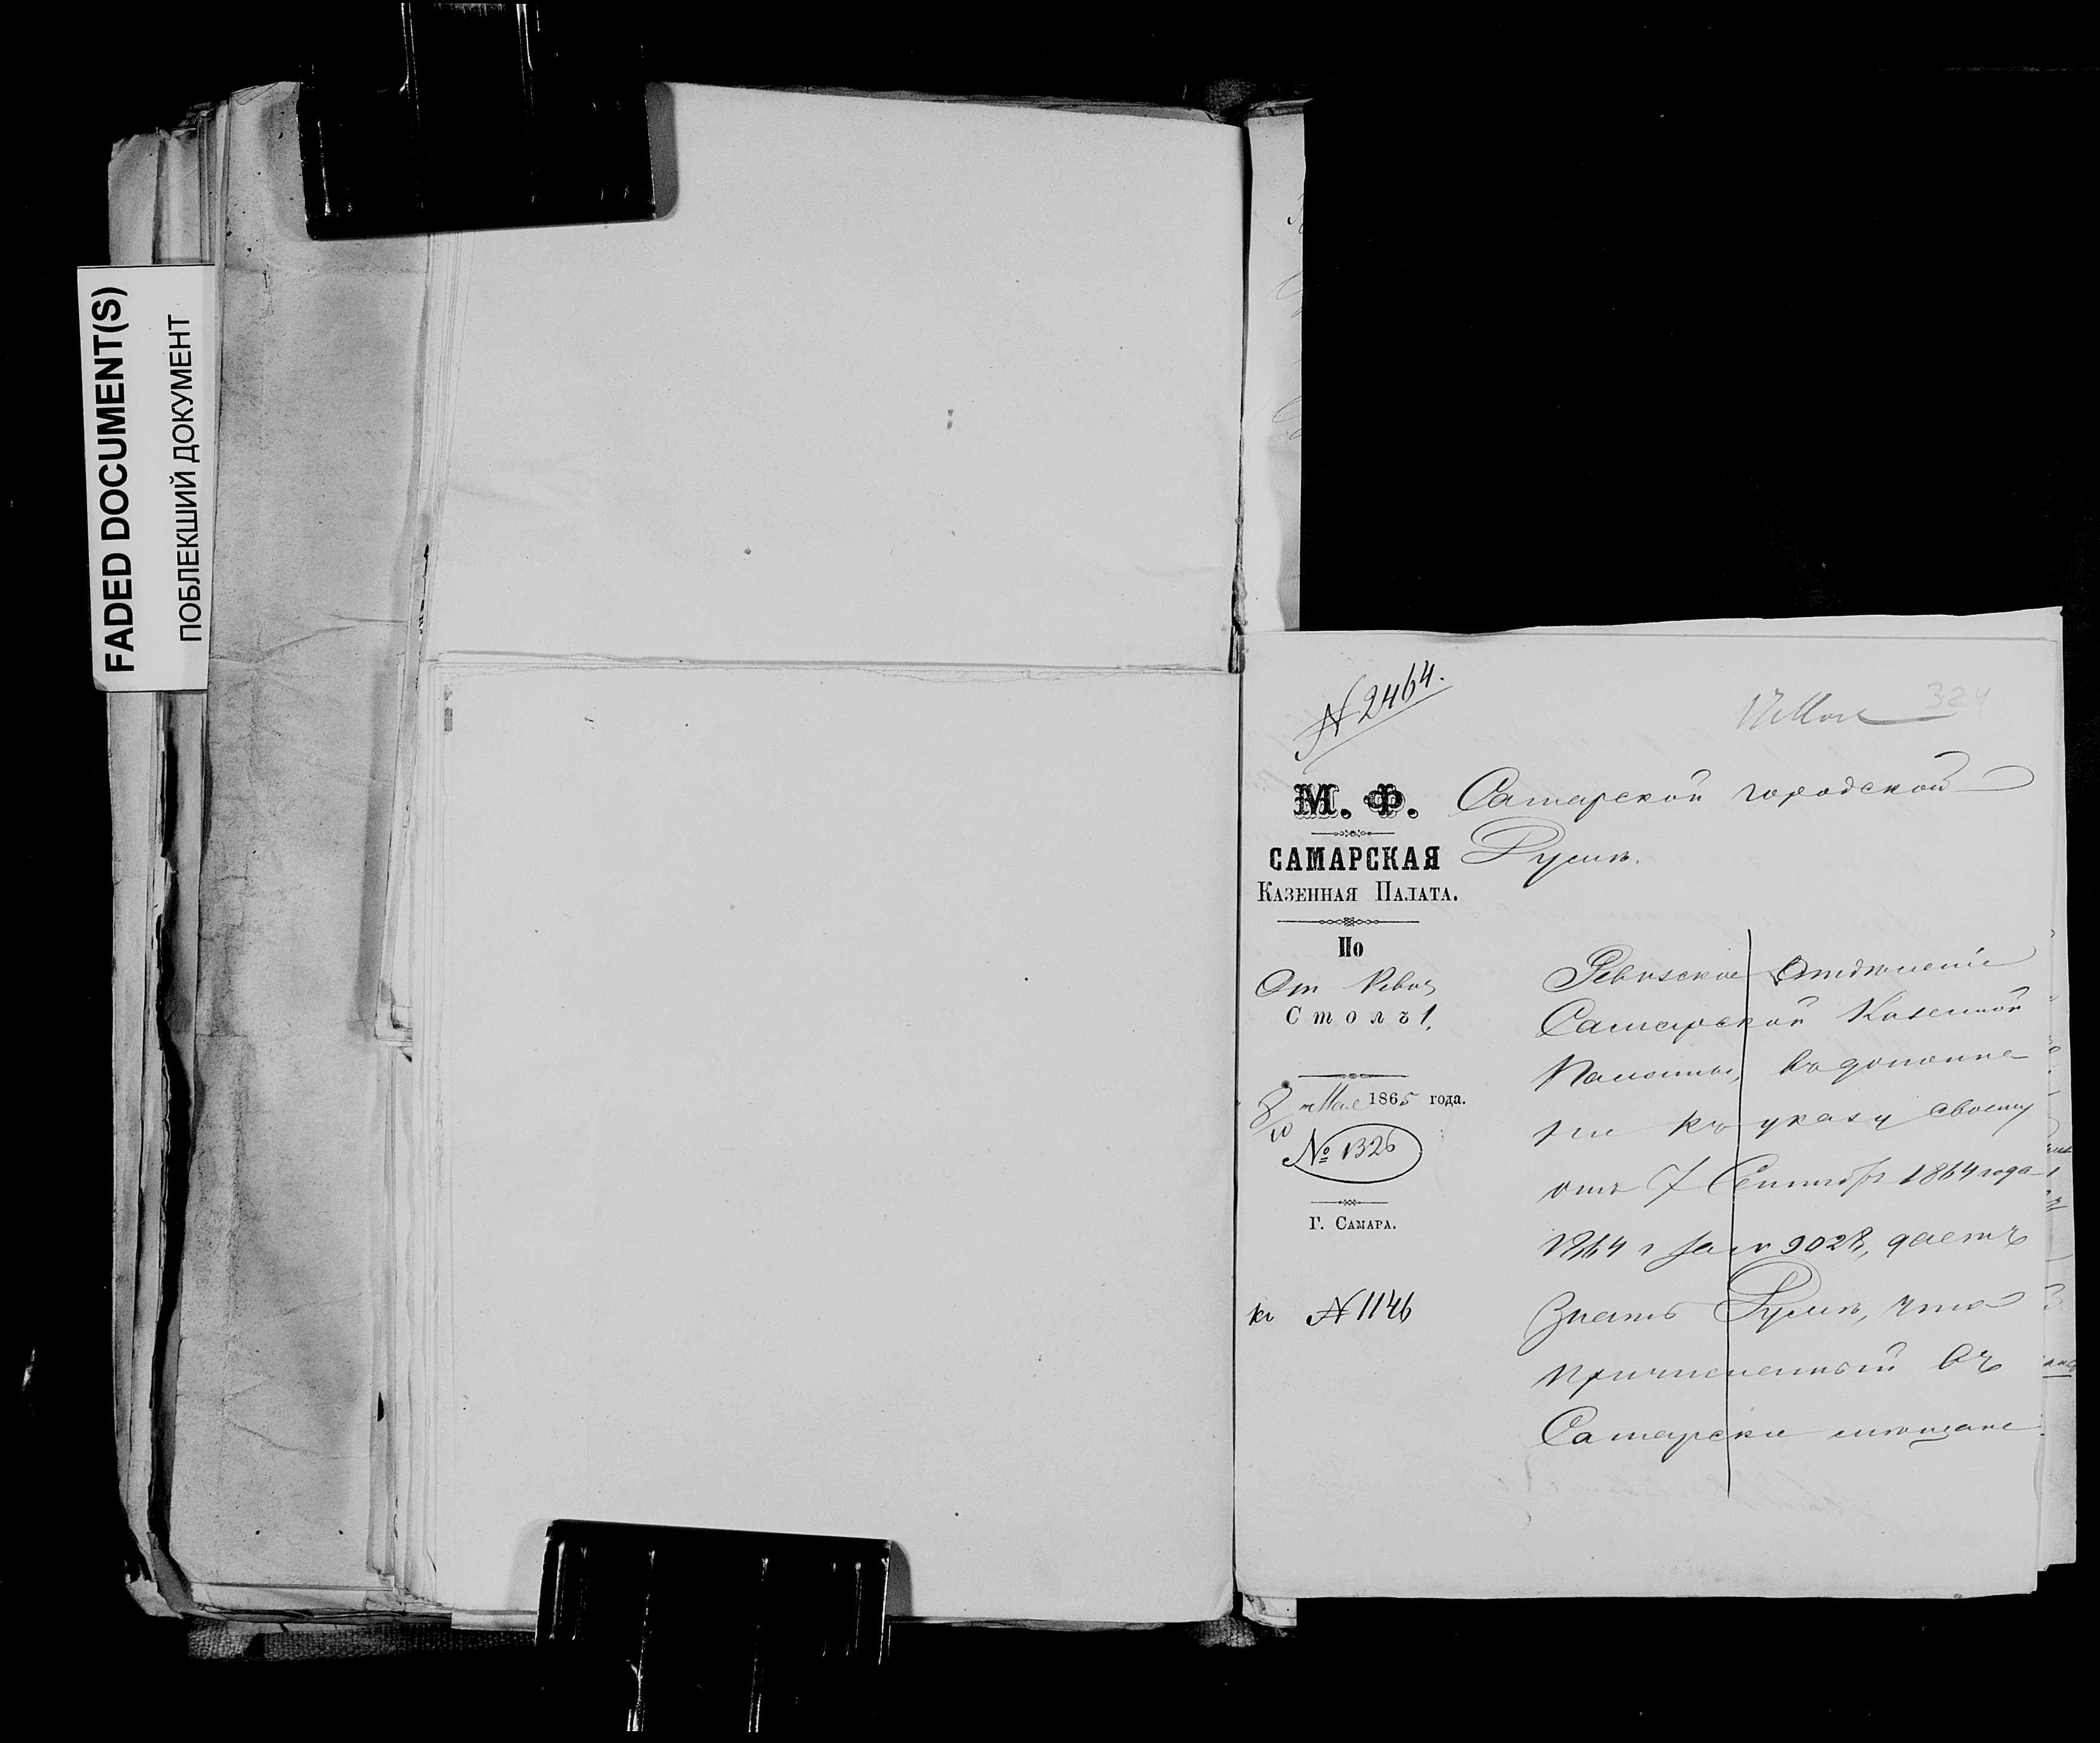 FADED DOCUMENT(S)
ПОБЛЕКШИЙ ДОКУМЕНТ
№ 2464.
17 Мая
324
М. Ф.
САМАРСКАЯ
КАЗЕННАЯ ПАЛАТА.
По
От Ревиз
Столъ 1.
8/10 Мая 1865 года.
№ 1326
Г. САМАРА.
къ № 1146
Самарской городской
Думѣ.
Ревизское Отдѣленіе
Самарской Казенной
Палаты, въ дополне-
ніи къ указу своему
отъ 7 Сентября 1864 года
1864 г за № 9028, даетъ
знать Думѣ, что
причисленный въ
Самарскіе мѣщане